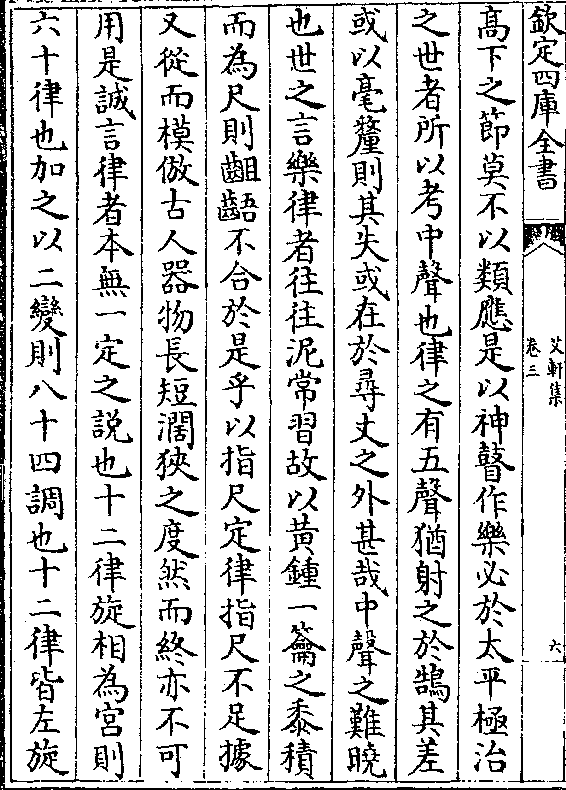 欽定四庫全書
艾軒集
卷三
六
高下之節莫不以類應是以神瞽作樂必於太平極治
之世者所以考中聲也律之有五聲猶射之於鵠其差
或以毫釐則其失或在於尋丈之外甚哉中聲之難曉
也世之言樂律者往往泥常習故以黃鍾一籥之黍積
而為尺則齟齬不合於是乎以指尺定律指尺不足據
又從而模倣古人器物長短濶狹之度然而終亦不可
用是誠言律者本無一定之説也十二律旋相為宮則
六十律也加之以二變則八十四調也十二律皆左旋